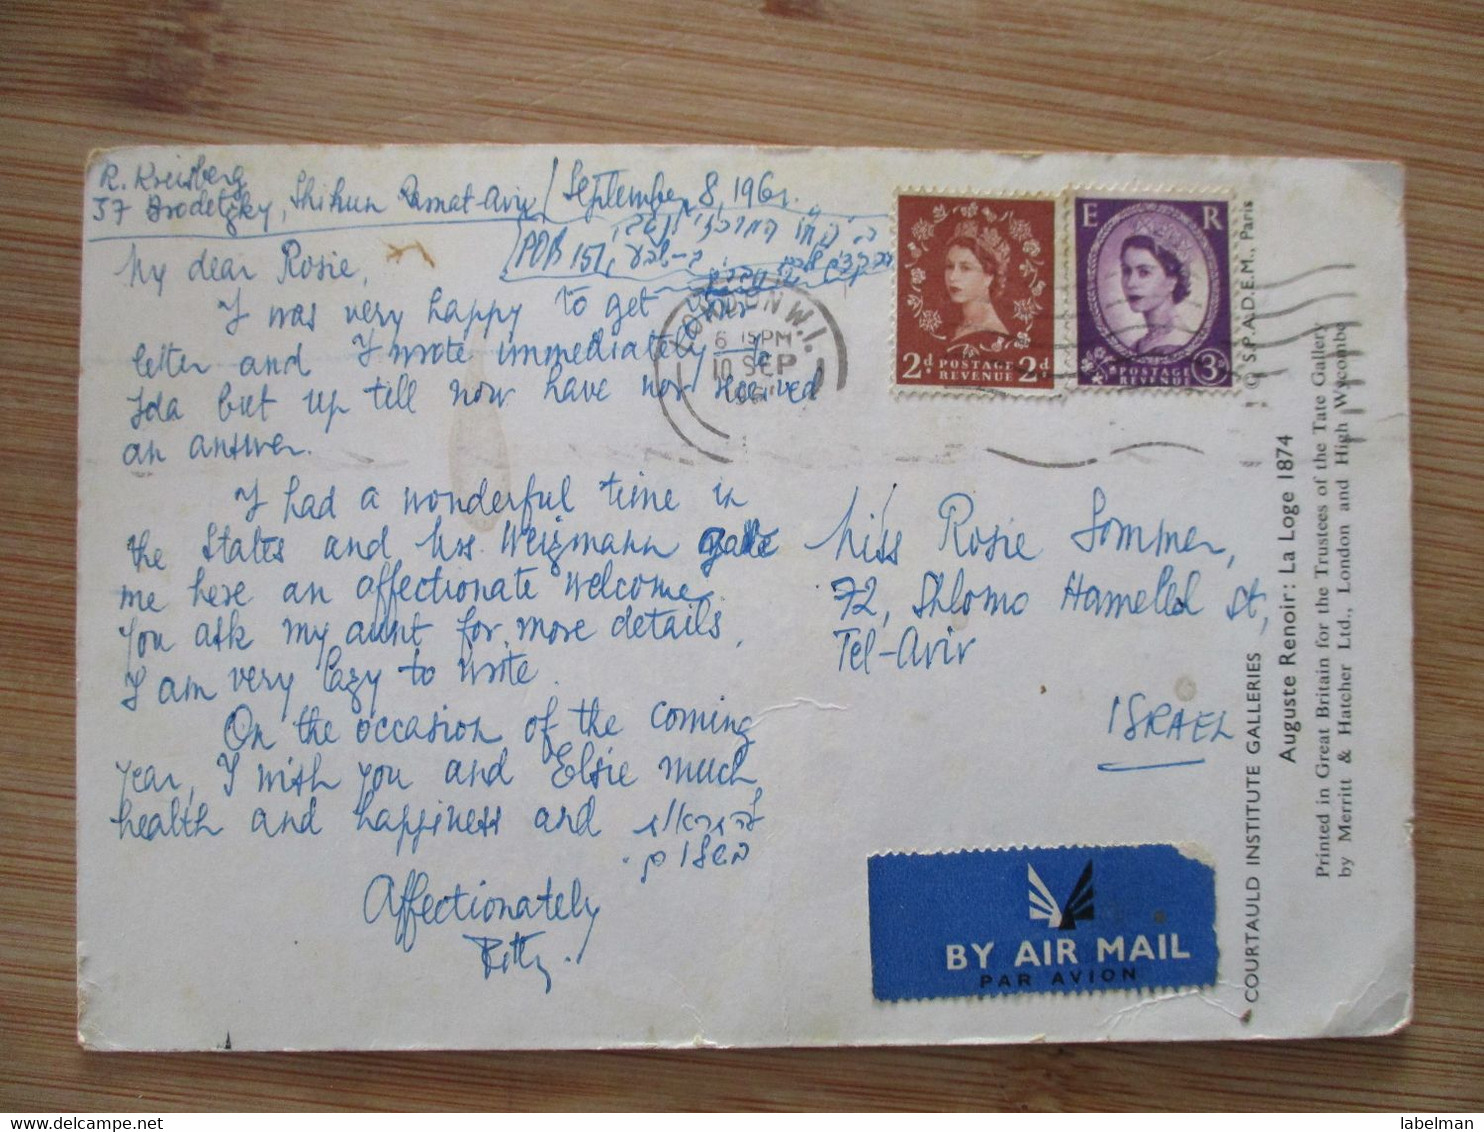 R. Kreisberg
37 Brodetzky, Shikun Ramat-Aviv
September 8, 1961.
POB 151, ב-שבע
My dear Rosie,
I was very happy to get your
letter and I wrote immediately to
Ida but up till now have not received
an answer.
I had a wonderful time in
the States and Mrs. Weizmann gave
me here an affectionate welcome.
You ask my aunt for more details,
I am very lazy to write.
On the occasion of the coming
year, I wish you and Elsie much
health and happiness and להתראות
בשלום.
Affectionately
Betty.
LONDON W.1.
6 15 PM
10 SEP
1961
2d POSTAGE REVENUE 2d
E R
POSTAGE REVENUE 3d
Miss Rosie Sommer,
72, Shlomo Hamelech St,
Tel-Aviv
ISRAEL
BY AIR MAIL
PAR AVION
COURTAULD INSTITUTE GALLERIES
© S.P.A.D.E.M., Paris
Auguste Renoir: La Loge 1874
Printed in Great Britain for the Trustees of the Tate Gallery
by Merritt & Hatcher Ltd., London and High Wycombe
labelman
delcampe.net